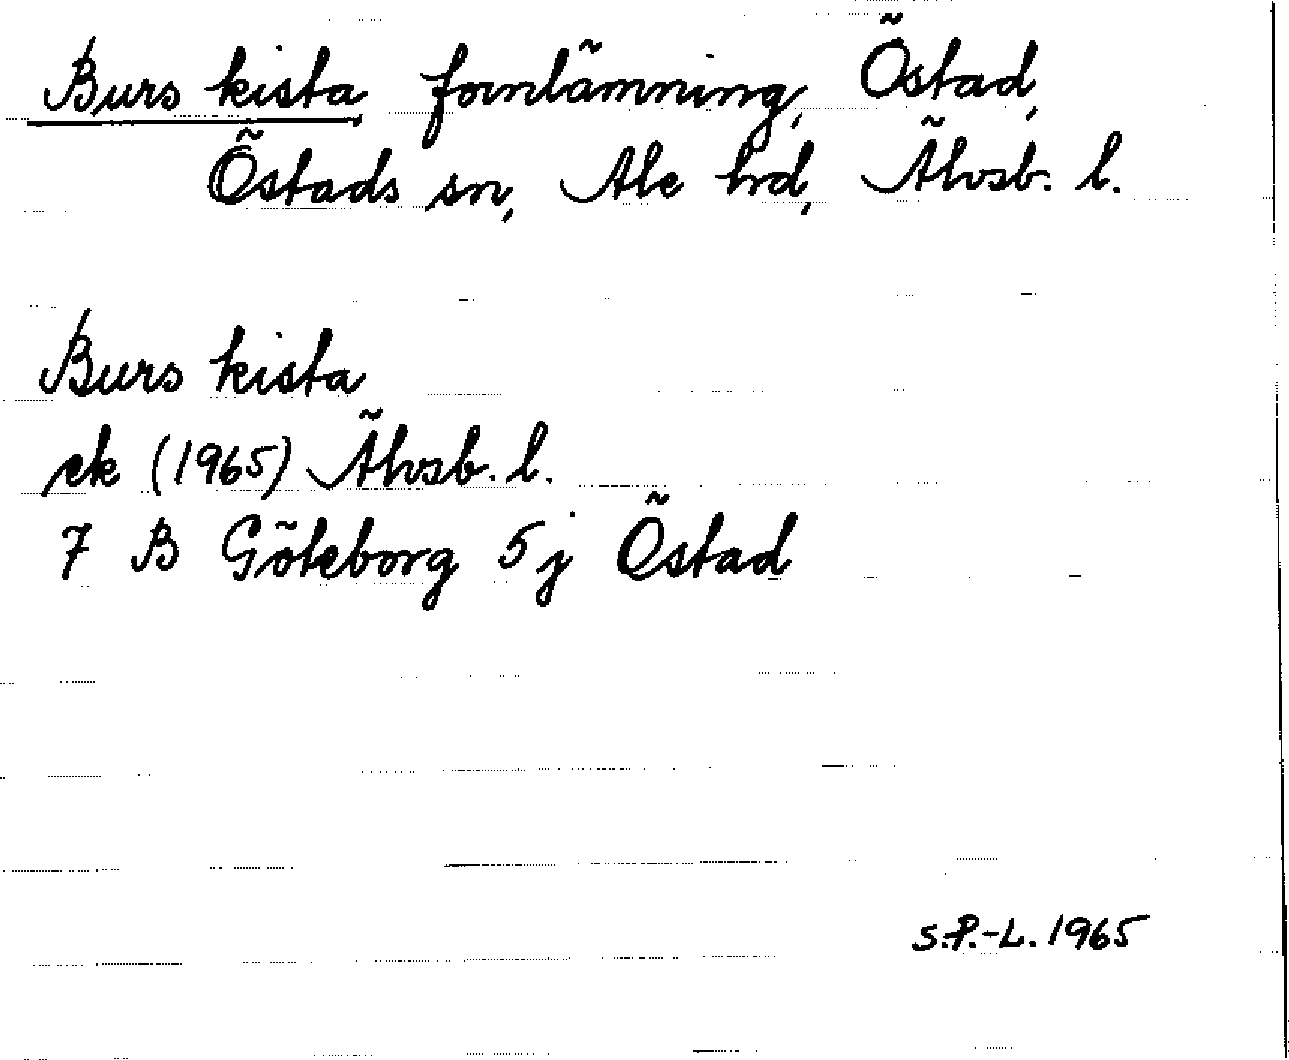 Burs kista fornlämning, Östad,
Östads sn, Ale hrd, Älvsb. l.
Burs kista
ek (1965) Älvsb. l.
7 B Göteborg 5 j Östad
S.P.-L. 1965